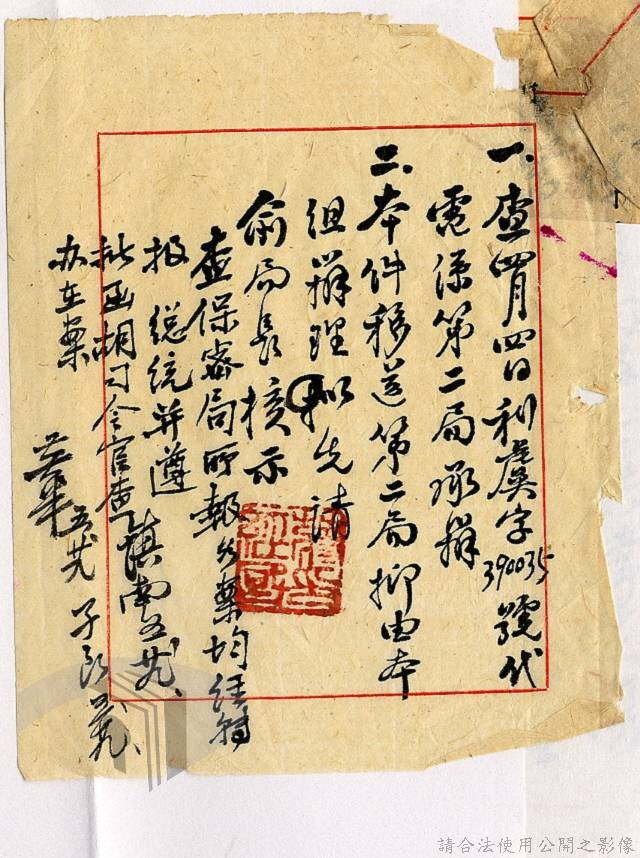 一、查四月四日利虞字390035號代
電係第二局承辦
二、本件移送第二局抑由本
組辦理擬先請
俞局長核示
查保密局所報各案均經轉
报總統并遵
批函胡司令官查
办在案
慎南五廿
請合法使用公開之影像